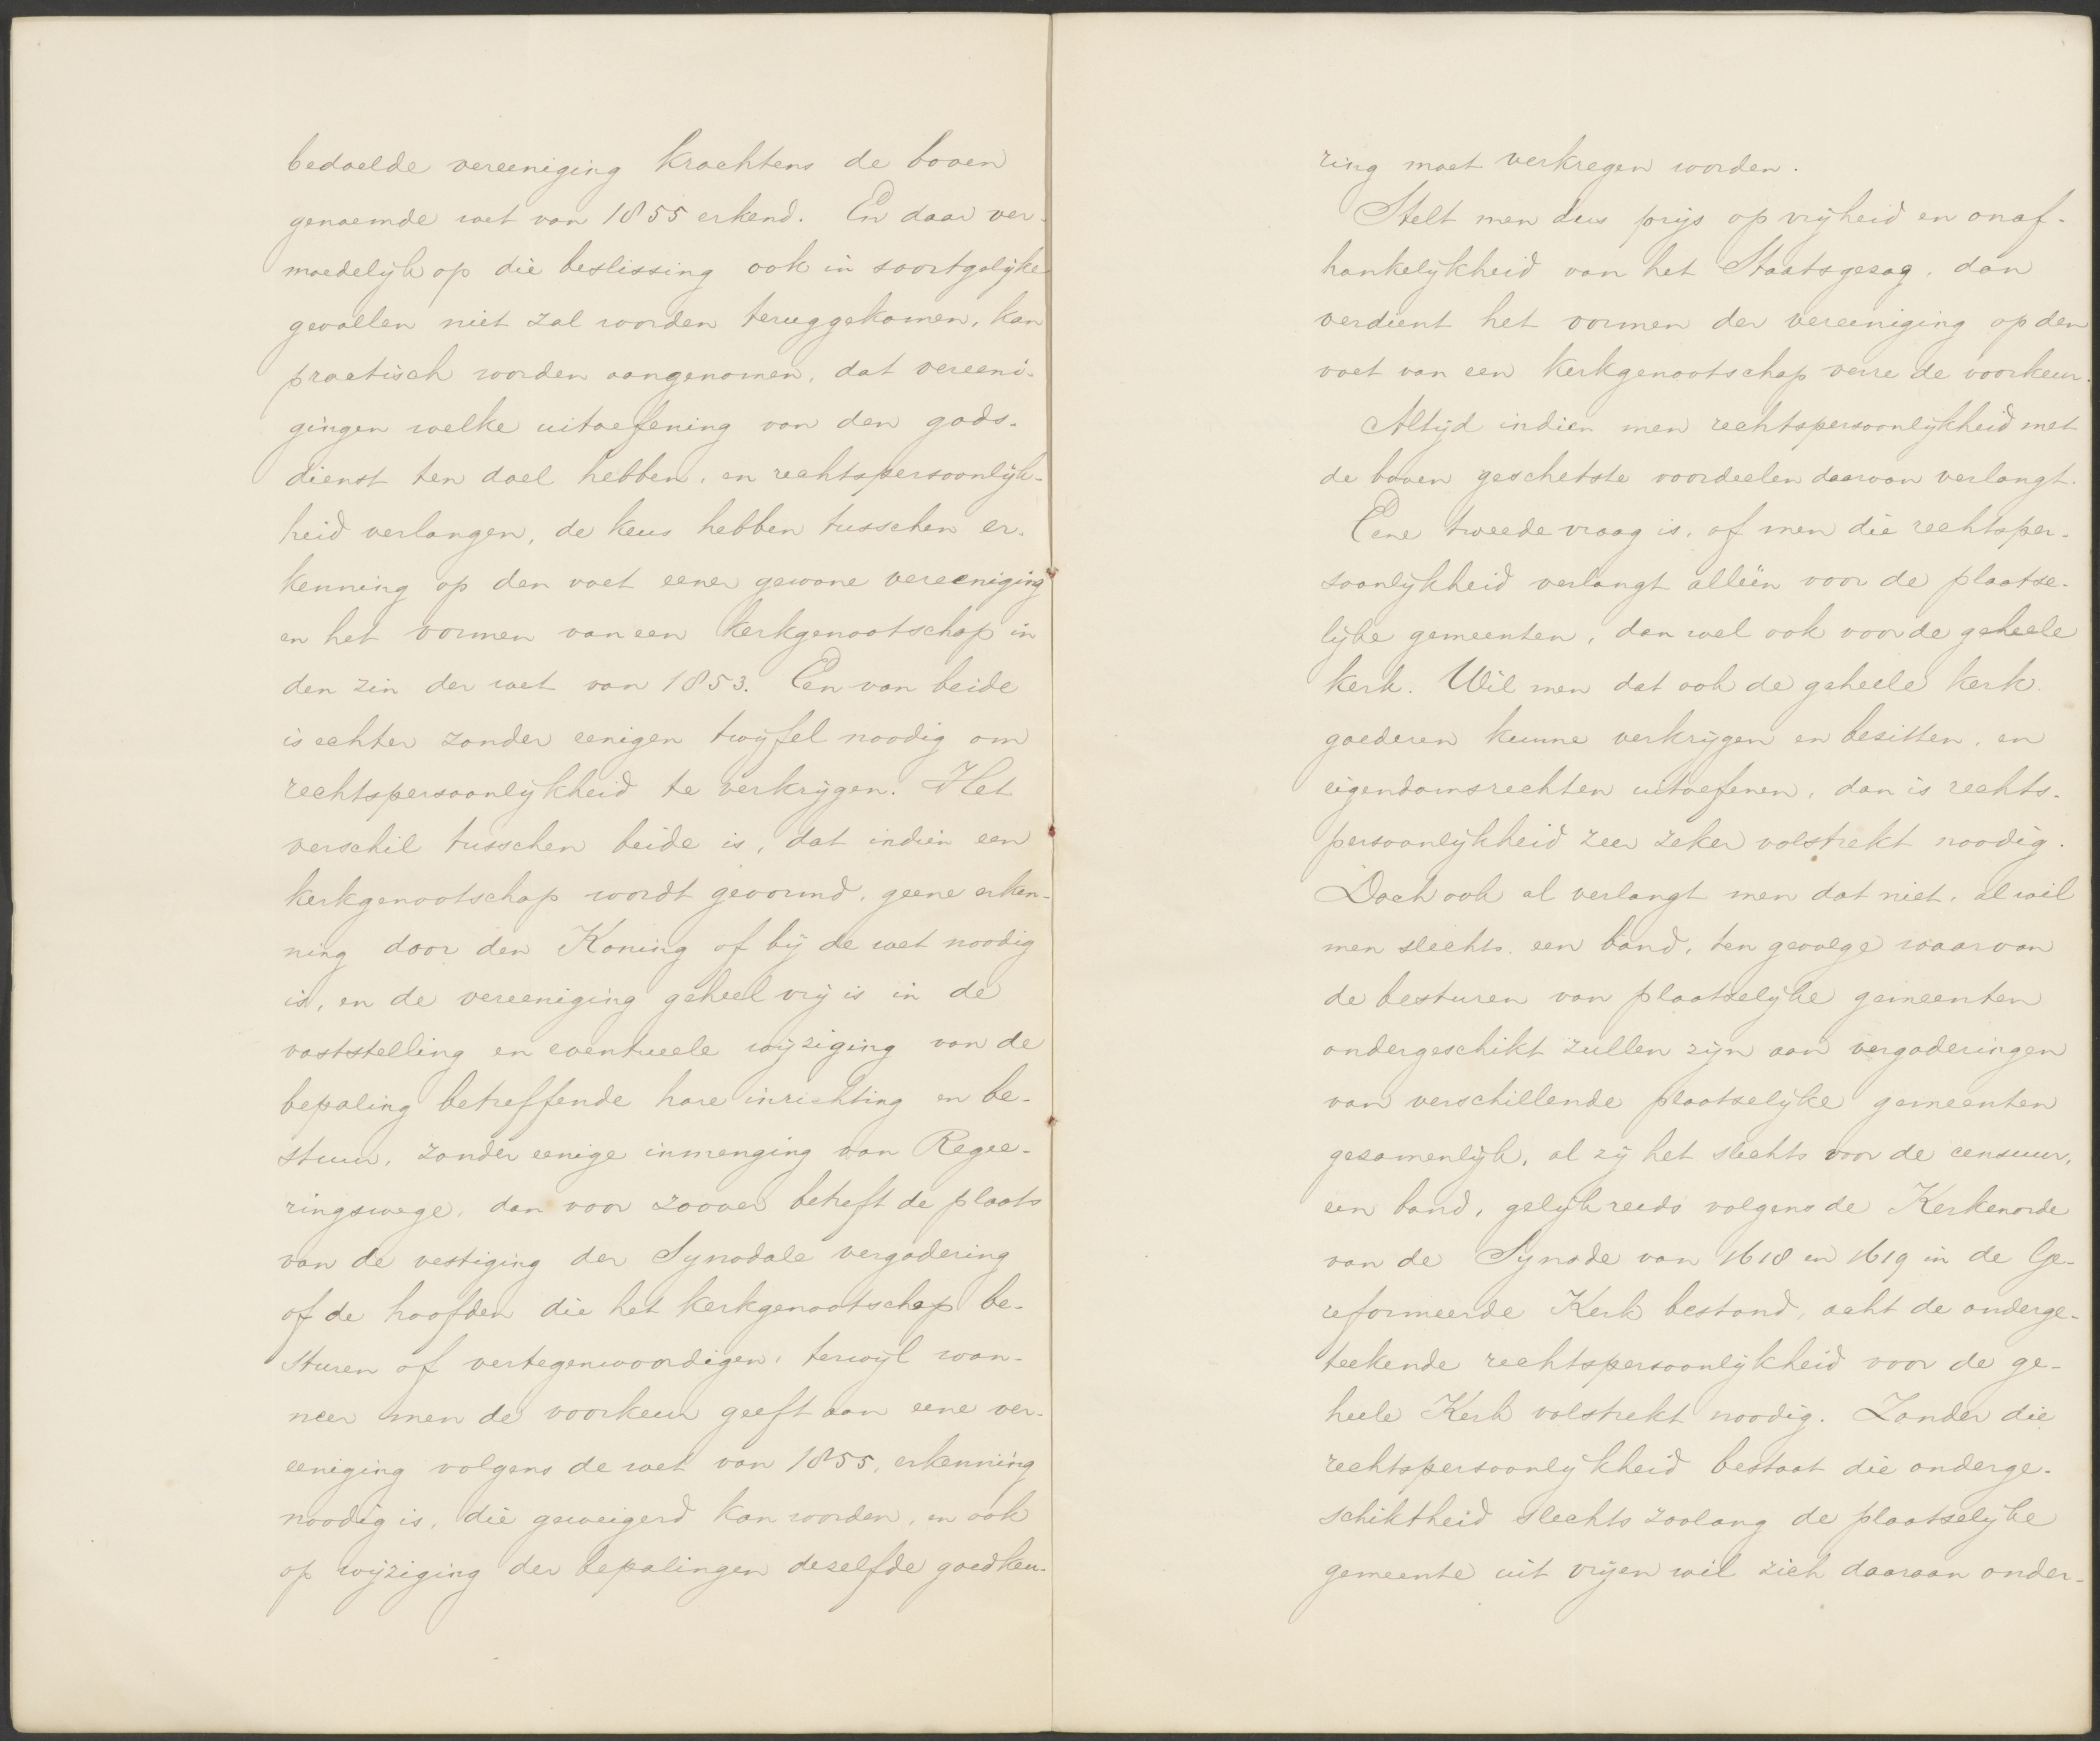 bedoelde vereeniging krachtens de boven
genoemde wet van 1855 erkend. En daar ver-
moedelijk op die beslissing ook in soortgelijke
gevallen niet zal worden teruggekomen, kan
practisch worden aangenomen, dat vereeni-
gingen welke uitoefening van den gods-
dienst ten doel hebben, en rechtspersoonlijk-
heid verlangen, de keus hebben tusschen er-
kenning op den voet eener gewone vereeniging
en het vormen van een kerkgenootschap in
den zin der wet van 1853. Een van beide
is echter zonder eenigen twijfel noodig om
rechtspersoonlijkheid te verkrijgen. Het
verschil tusschen beide is, dat indien een
kerkgenootschap wordt gevormd, geene erken-
ning door den Koning of bij de wet noodig
is, en de vereeniging geheel vrij is in de
vaststelling en eventueele wijziging van de
bepaling betreffende hare inrichting en be-
stuur, zonder eenige inmenging van Regee-
ringswege, dan voor zoover betreft de plaats
van de vestiging der Synodale vergadering
of de hoofden die het kerkgenootschap be-
sturen of vertegenwoordigen, terwijl wan-
neer men de voorkeur geeft aan eene ver-
eeniging volgens de wet van 1855, erkenning
noodig is, die geweigerd kan worden, en ook
op wijziging der bepalingen dezelfde goedkeu-
ring moet verkregen worden.
Stelt men dus prijs op vrijheid en onaf-
hankelijkheid van het Staatsgezag, dan
verdient het vormen der vereeniging op den
voet van een Kerkgenootschap verre de voorkeur.
Altijd indien men rechtspersoonlijkheid met
de boven geschetste voordeelen daarvan verlangt.
Eene tweede vraag is, of men die rechtsper-
soonlijkheid verlangt alleen voor de plaatse-
lijke gemeenten, dan wel ook voor de geheele
kerk. Wil men dat ook de geheele kerk
goederen kunne verkrijgen en besitten, en
eigendomsrechten uitoefenen, dan is rechts-
persoonlijkheid zeer zeker volstrekt noodig.
Doch ook al verlangt men dat niet, al wil
men slechts een band, ten gevolge waarvan
de besturen van plaatselijke gemeenten
ondergeschikt zullen zijn aan vergaderingen
van verschillende plaatselijke gemeenten
gezamenlijk, al zij het slechts voor de censuur,
een band, gelijk reeds volgens de Kerkenorde
van de Synode van 1618 en 1619 in de Ge-
reformeerde Kerk bestond, acht de onderge-
teekende rechtspersoonlijkheid voor de ge-
heele Kerk volstrekt noodig. Zonder die
rechtspersoonlijkheid bestaat die onderge-
schiktheid slechts zoolang de plaatselijke
gemeente uit vrijen wil zich daaraan onder-